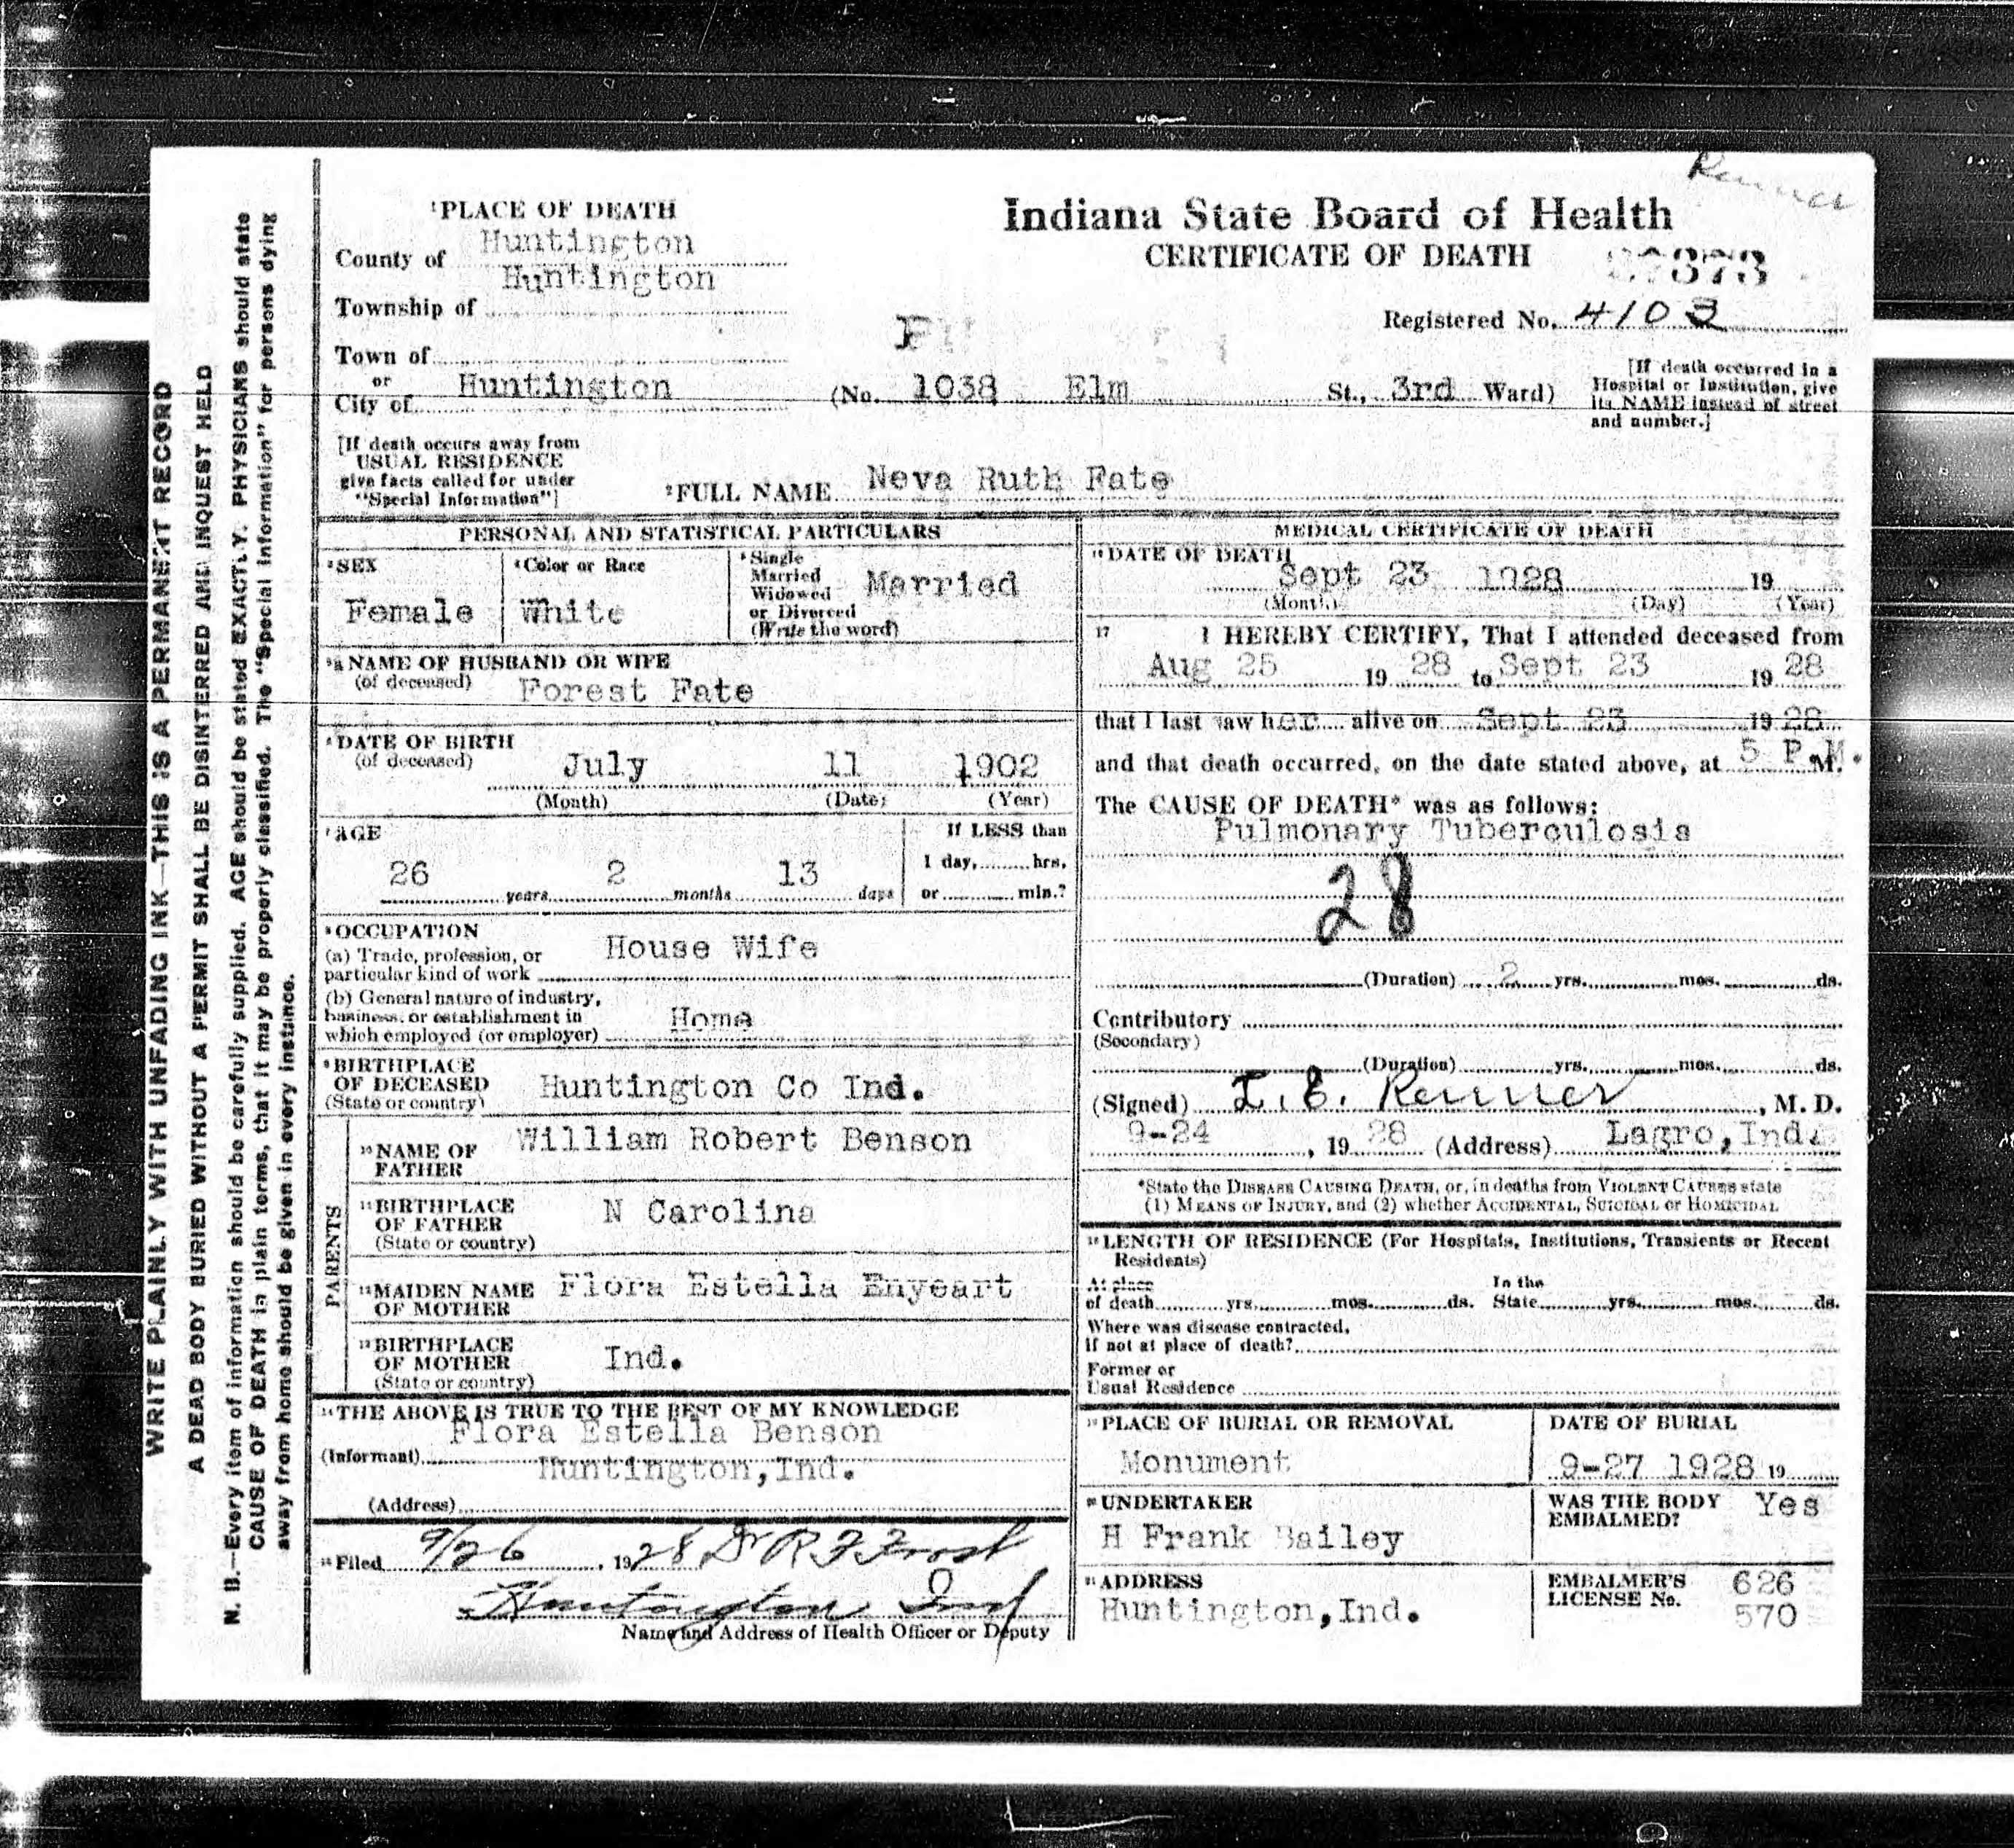 Renner
¹PLACE OF DEATH
County of Huntington
Township of Huntington
Town of
or
City of Huntington
Indiana State Board of Health
CERTIFICATE OF DEATH
Registered No. 4103
(No. 1038 Elm St., 3rd Ward)
[If death occurred in a
Hospital or Institution, give
its NAME instead of street
and number.]
[If death occurs away from
USUAL RESIDENCE
give facts called for under
"Special Information"]
²FULL NAME Neva Ruth Fate
PERSONAL AND STATISTICAL PARTICULARS
³SEX
Female
⁴Color or Race
White
⁵Single
Married
Widowed
or Divorced
(Write the word)
Married
⁵ᵃNAME OF HUSBAND OR WIFE
(of deceased) Forest Fate
⁶DATE OF BIRTH
(of deceased) July 11 1902
(Month) (Date) (Year)
⁷AGE
26 years 2 months 13 days
If LESS than
1 day, hrs.
or min.?
⁸OCCUPATION
(a) Trade, profession, or
particular kind of work House Wife
(b) General nature of industry,
business, or establishment in
which employed (or employer) Home
⁹BIRTHPLACE
OF DECEASED
(State or country) Huntington Co Ind.
PARENTS
¹⁰NAME OF
FATHER William Robert Benson
¹¹BIRTHPLACE
OF FATHER
(State or country) N Carolina
¹²MAIDEN NAME
OF MOTHER Flora Estella Enyeart
¹³BIRTHPLACE
OF MOTHER
(State or country) Ind.
¹⁴THE ABOVE IS TRUE TO THE BEST OF MY KNOWLEDGE
(Informant) Flora Estella Benson
(Address) Huntington,Ind.
¹⁵Filed 9/26, 1928 Dr R F Frost
Huntington Ind
Name and Address of Health Officer or Deputy
MEDICAL CERTIFICATE OF DEATH
¹⁶DATE OF DEATH
Sept 23 1928 19
(Month) (Day) (Year)
¹⁷ I HEREBY CERTIFY, That I attended deceased from
Aug 25 19 28 to Sept 23 19 28
that I last saw her alive on Sept 23 1928
and that death occurred, on the date stated above, at 5 P.M. M.
The CAUSE OF DEATH* was as follows:
Pulmonary Tuberculosis
28
(Duration) 2 yrs. mos. ds.
Contributory
(Secondary)
(Duration) yrs. mos. ds.
(Signed) I. E. Renner, M. D.
9-24, 19 28 (Address) Lagro,Ind.
*State the DISEASE CAUSING DEATH, or, in deaths from VIOLENT CAUSES state
(1) MEANS OF INJURY, and (2) whether ACCIDENTAL, SUICIDAL or HOMICIDAL
¹⁸LENGTH OF RESIDENCE (For Hospitals, Institutions, Transients or Recent
Residents)
At place
of death yrs. mos. ds.
In the
State yrs. mos. ds.
Where was disease contracted,
if not at place of death?
Former or
Usual Residence
¹⁹PLACE OF BURIAL OR REMOVAL
Monument
DATE OF BURIAL
9-27 1928 19
²⁰UNDERTAKER
H Frank Bailey
WAS THE BODY
EMBALMED? Yes
²¹ADDRESS
Huntington,Ind.
EMBALMER'S
LICENSE No.
626
570
WRITE PLAINLY WITH UNFADING INK—THIS IS A PERMANENT RECORD
A DEAD BODY BURIED WITHOUT A PERMIT SHALL BE DISINTERRED AND INQUEST HELD
N. B.—Every item of information should be carefully supplied. AGE should be stated EXACTLY. PHYSICIANS should state
CAUSE OF DEATH in plain terms, that it may be properly classified. The "Special Information" for persons dying
away from home should be given in every instance.